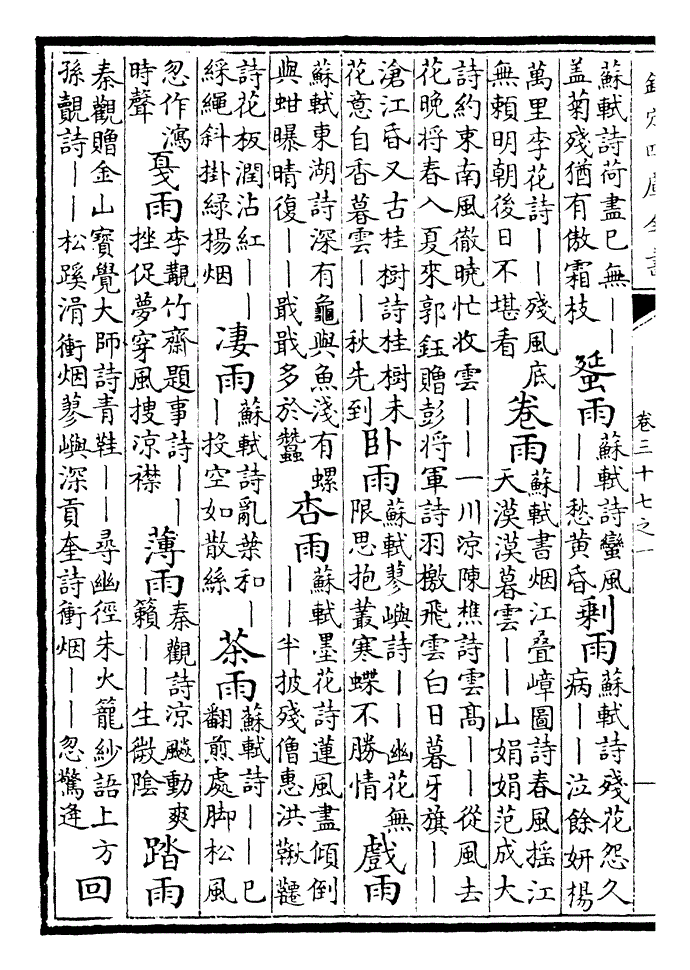 欽定四庫全書
卷三十七之一
蘇軾詩荷盡已無丨丨
盖菊殘猶有傲霜枝
蜑雨
蘇軾詩蠻風
丨丨愁黄昏
剩雨
蘇軾詩殘花怨久
病丨丨泣餘妍楊
萬里李花詩丨丨殘風底
無賴明朝後日不堪看
卷雨
蘇軾書烟江叠嶂圖詩春風摇江
天漠漠暮雲丨丨山娟娟范成大
詩約束南風徹曉忙收雲丨丨一川凉陳樵詩雲髙丨丨從風去
花晚将春入夏來郭鈺贈彭将軍詩羽檄飛雲白日暮牙旗丨丨
滄江昏又古桂樹詩桂樹未
花意自香暮雲丨丨秋先到
卧雨
蘇軾蓼嶼詩丨丨幽花無
限思抱叢寒蝶不勝情
戲雨
蘇軾東湖詩深有龜與魚淺有螺
與蚶曝晴復丨丨戢戢多於蠶
杏雨
蘇軾墨花詩蓮風盡傾倒
丨丨半披殘僧惠洪鞦韆
詩花板潤沾紅丨丨
綵繩斜掛緑楊烟
凄雨
蘇軾詩亂葉和丨
丨投空如散絲
茶雨
蘇軾詩丨丨已
翻煎處脚松風
忽作瀉
時聲
戛雨
李覯竹齋題事詩丨丨
挫促夢穿風捜凉襟
薄雨
秦觀詩凉飈動爽
籟丨丨生微陰
踏雨
秦觀贈金山寳覺大師詩青鞋丨丨尋幽徑朱火籠紗語上方
孫覿詩丨丨松蹊滑衝烟蓼嶼深貢奎詩衝烟丨丨忽驚逢
回